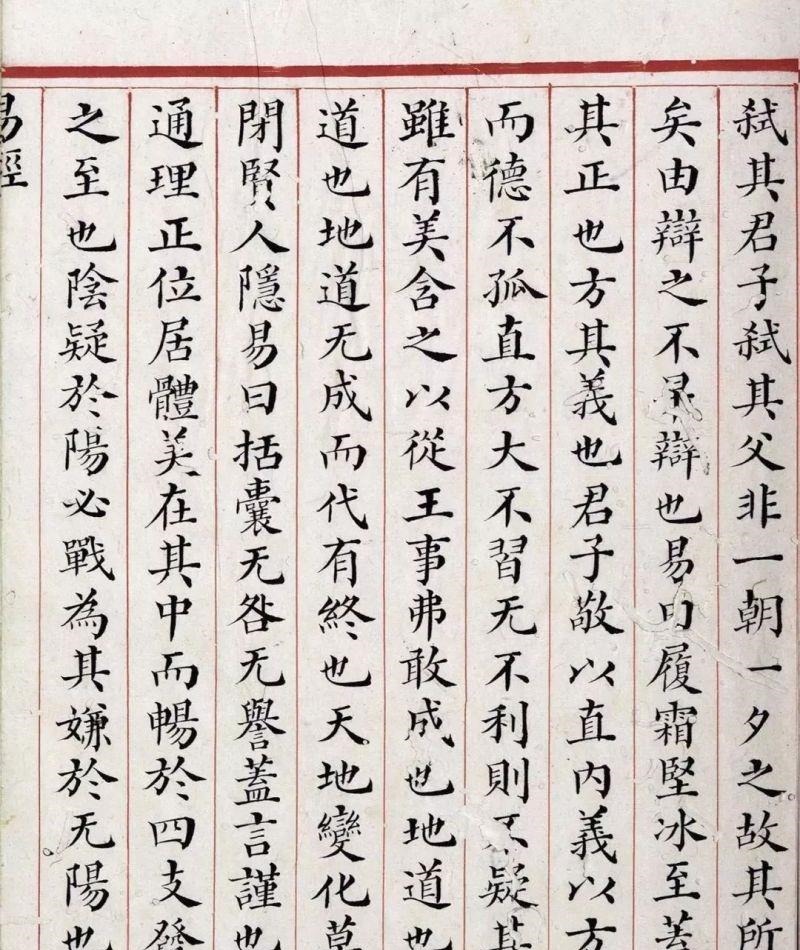 弒其君子弒其父非一朝一夕之故其所
矣由辯之不早辯也易曰履霜堅冰至葢
其正也方其義也君子敬以直內義以方
而德不孤直方大不習无不利則不疑其
雖有美含之以從王事弗敢成也地道也
道也地道无成而代有終也天地變化草
閉賢人隱易曰括囊无咎无譽蓋言謹也
通理正位居體美在其中而暢於四支發
之至也陰疑於陽必戰為其嫌於无陽也
易經